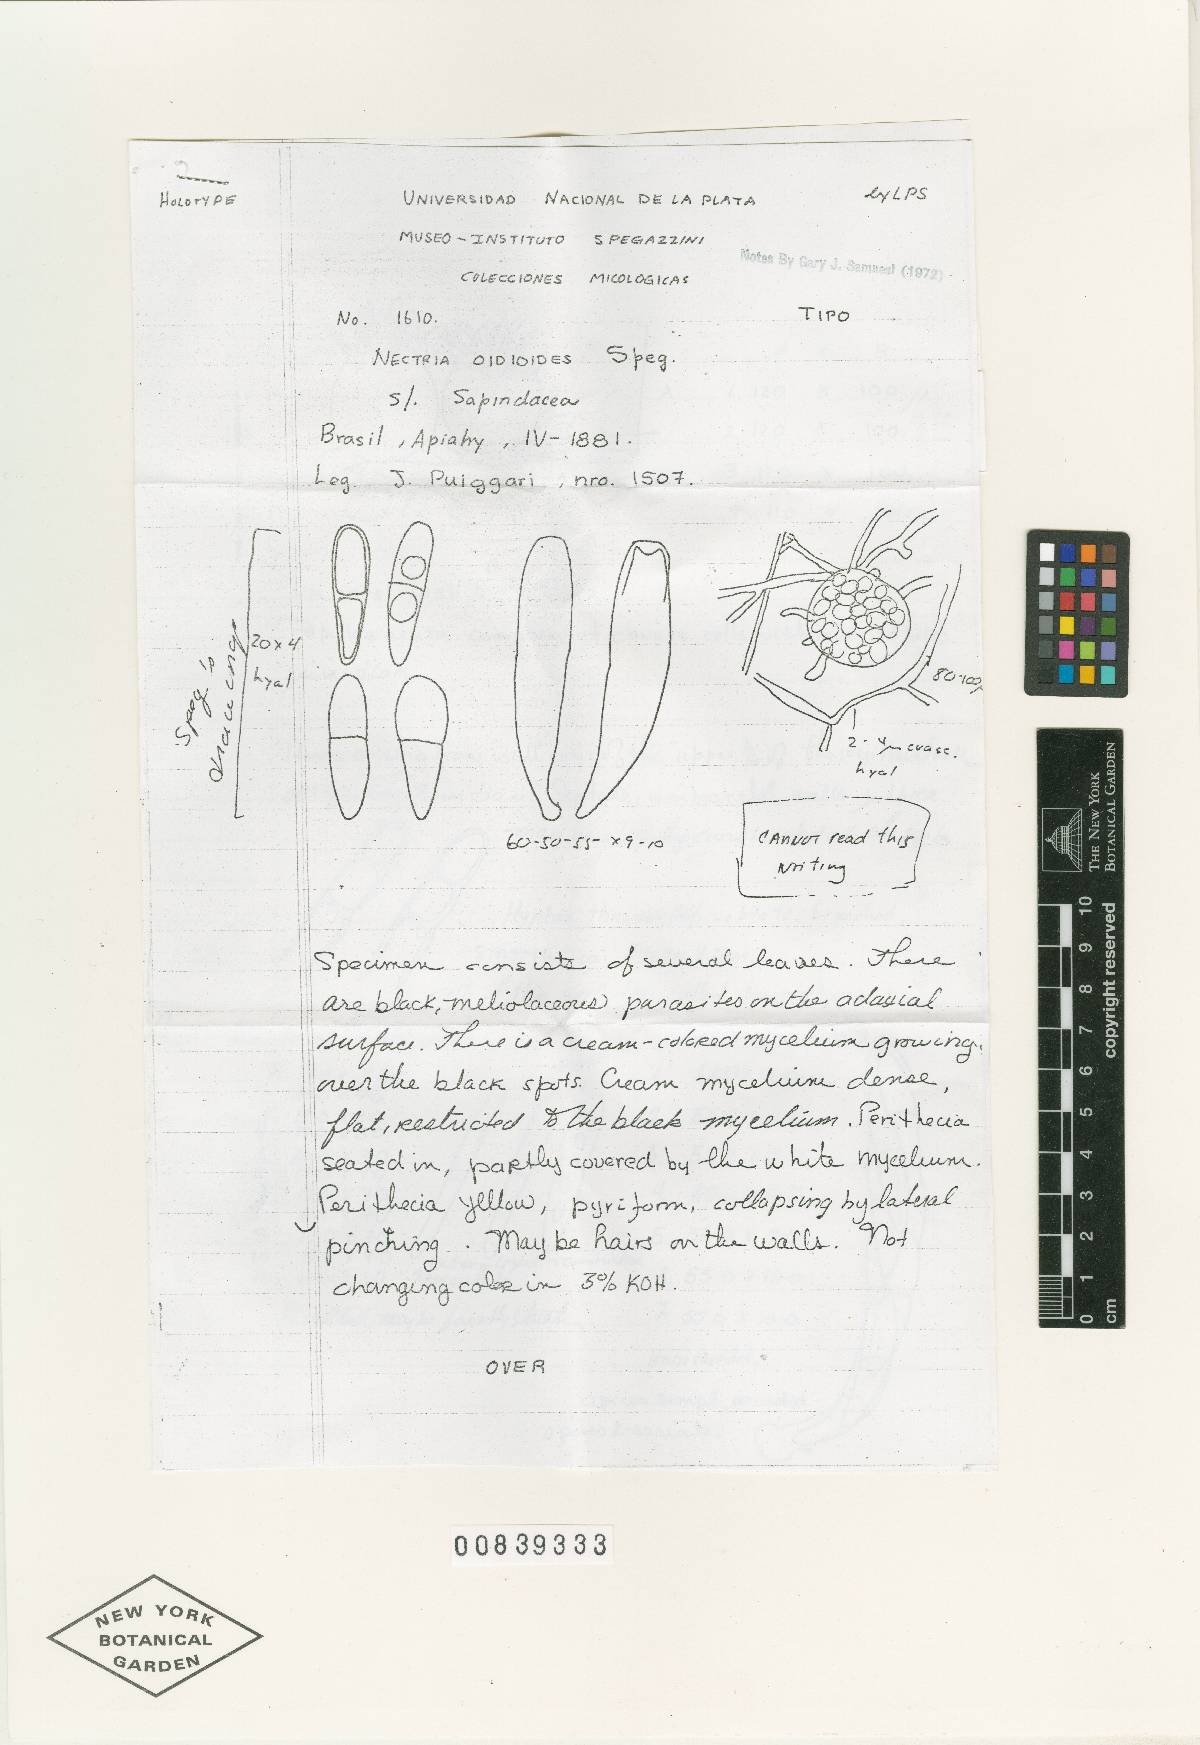 HOLOTYPE
UNIVERSIDAD NACIONAL DE LA PLATA
by LPS
MUSEO-INSTITUTO SPEGAZZINI
Notes By Gary J. Samuel (1972)
COLECCIONES MICOLOGICAS
No. 1610.
TIPO
NECTRIA OIDIOIDES Speg.
s/. Sapindacea
Brasil, Apiahy, IV-1881.
Leg. J. Puiggari, nro. 1507.
Speg's
drawings
20x4
hyal
80-100µ
2-4µm crasc.
hyal
60-50-55- x 9-10
CANNOT read this
writing
Specimen consists of several leaves. There
are black, meliolaceous parasites on the adaxial
surface. There is a cream-colored mycelium growing
over the black spots. Cream mycelium dense,
flat, restricted to the black mycelium. Perithecia
seated in, partly covered by the white mycelium.
Perithecia yellow, pyriform, collapsing by lateral
pinching. May be hairs on the walls. Not
changing color in 3% KOH.
OVER
00839333
NEW YORK
BOTANICAL
GARDEN
THE NEW YORK
BOTANICAL GARDEN
copyright reserved
0 1 2 3 4 5 6 7 8 9 10
cm